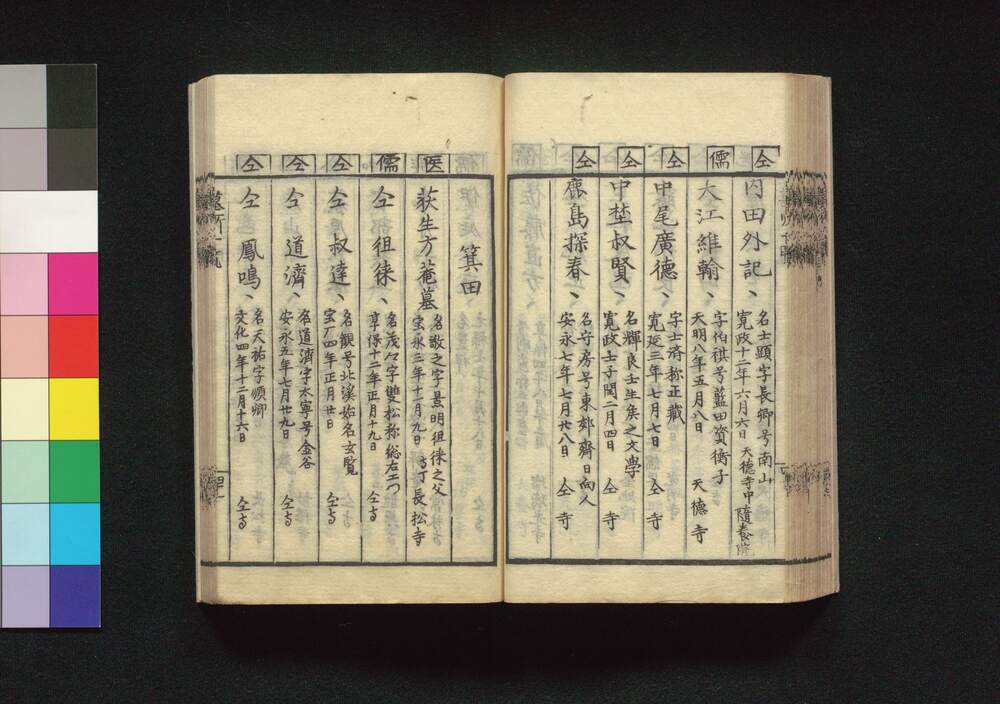 仝
内田外記、
名士顕字長卿号南山
寛政十二年六月六日 天徳寺中随養院
儒
大江維翰、
字伯祺号藍田資衡子
天明八年五月八日 天徳寺
仝
中尾廣徳、
字士済称正蔵
寛延三年七月七日 仝寺
仝
中埜叔賢、
名輝良壬生矦之文学
寛政壬子閏二月四日 仝寺
仝
鹿島探春、
名守房号東郊斎日向人
安永七年七月廿八日 仝寺
箕田
医
荻生方菴墓
名敬之字景明徂徠之父
宝永三年十一月九日 寺丁長松寺
儒
仝徂徠、
名茂々字雙松称総右エ門
享保十二年正月十九日 仝寺
仝
仝叔達、
名観号北溪始名玄覧
宝丁四年正月廿日 仝寺
仝
仝道濟、
名道濟字太寧号金谷
安永五年七月廿九日 仝寺
仝
仝鳳鳴、
名天祐字順卿
文化四年十二月十六日 仝寺
墓所一覧
四一